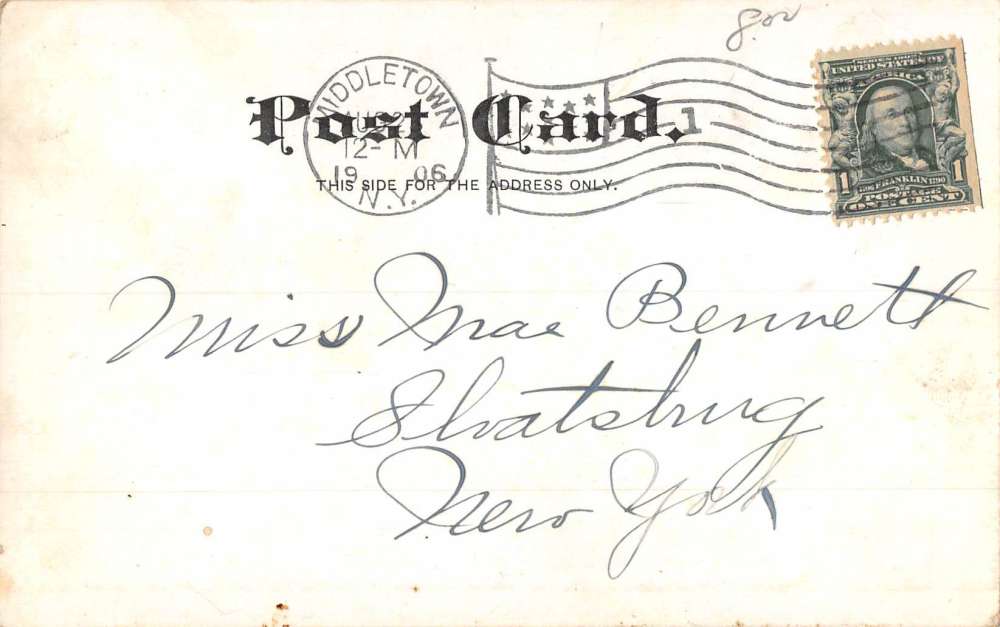 8.00
MIDDLETOWN
12-M
19 06
N.Y.
1
Post Card.
THIS SIDE FOR THE ADDRESS ONLY.
SERIES 1902
UNITED STATES OF
AMERICA
1 FRANKLIN 1
POSTAGE
ONE CENT
Miss Mae Bennett
Sloatsburg
New York